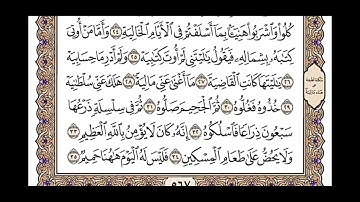 كُلُوا۟ وَٱشْرَبُوا۟ هَنِيٓـًٔۢا بِمَآ أَسْلَفْتُمْ فِى ٱلْأَيَّامِ ٱلْخَالِيَةِ ٢٤ وَأَمَّا مَنْ أُوتِىَ
كِتَـٰبَهُۥ بِشِمَالِهِۦ فَيَقُولُ يَـٰلَيْتَنِى لَمْ أُوتَ كِتَـٰبِيَهْ ٢٥ وَلَمْ أَدْرِ مَا حِسَابِيَهْ
٢٦ يَـٰلَيْتَهَا كَانَتِ ٱلْقَاضِيَةَ ٢٧ مَآ أَغْنَىٰ عَنِّى مَالِيَهْ ۜ ٢٨ هَلَكَ عَنِّى سُلْطَـٰنِيَهْ
٢٩ خُذُوهُ فَغُلُّوهُ ٣٠ ثُمَّ ٱلْجَحِيمَ صَلُّوهُ ٣١ ثُمَّ فِى سِلْسِلَةٍ ذَرْعُهَا
سَبْعُونَ ذِرَاعًا فَٱسْلُكُوهُ ٣٢ إِنَّهُۥ كَانَ لَا يُؤْمِنُ بِٱللَّهِ ٱلْعَظِيمِ ٣٣
وَلَا يَحُضُّ عَلَىٰ طَعَامِ ٱلْمِسْكِينِ ٣٤ فَلَيْسَ لَهُ ٱلْيَوْمَ هَـٰهُنَا حَمِيمٌ ٣٥
٥٦٧